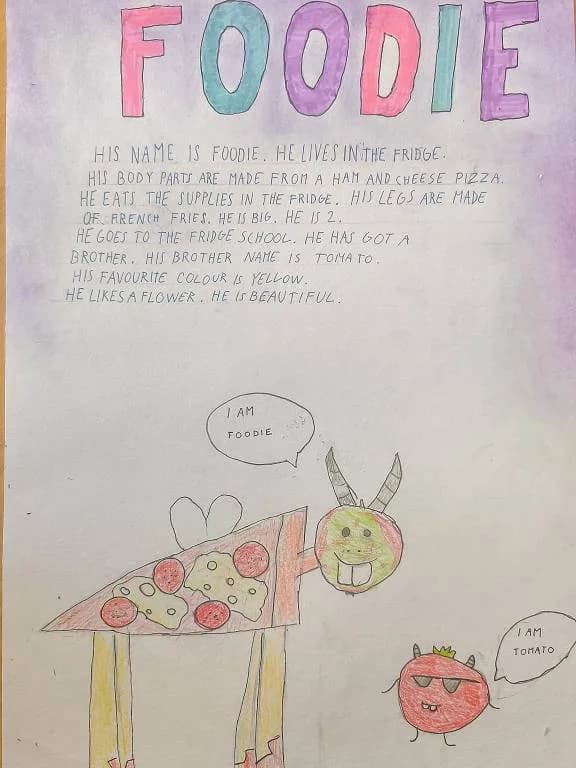 FOODIE
HIS NAME IS FOODIE. HE LIVES IN THE FRIDGE.
HIS BODY PARTS ARE MADE FROM A HAM AND CHEESE PIZZA.
HE EATS THE SUPPLIES IN THE FRIDGE. HIS LEGS ARE MADE
OF FRENCH FRIES. HE IS BIG. HE IS 2.
HE GOES TO THE FRIDGE SCHOOL. HE HAS GOT A
BROTHER. HIS BROTHER NAME IS TOMATO.
HIS FAVOURITE COLOUR IS YELLOW.
HE LIKES A FLOWER. HE IS BEAUTIFUL.
I AM
FOODIE
I AM
TOMATO